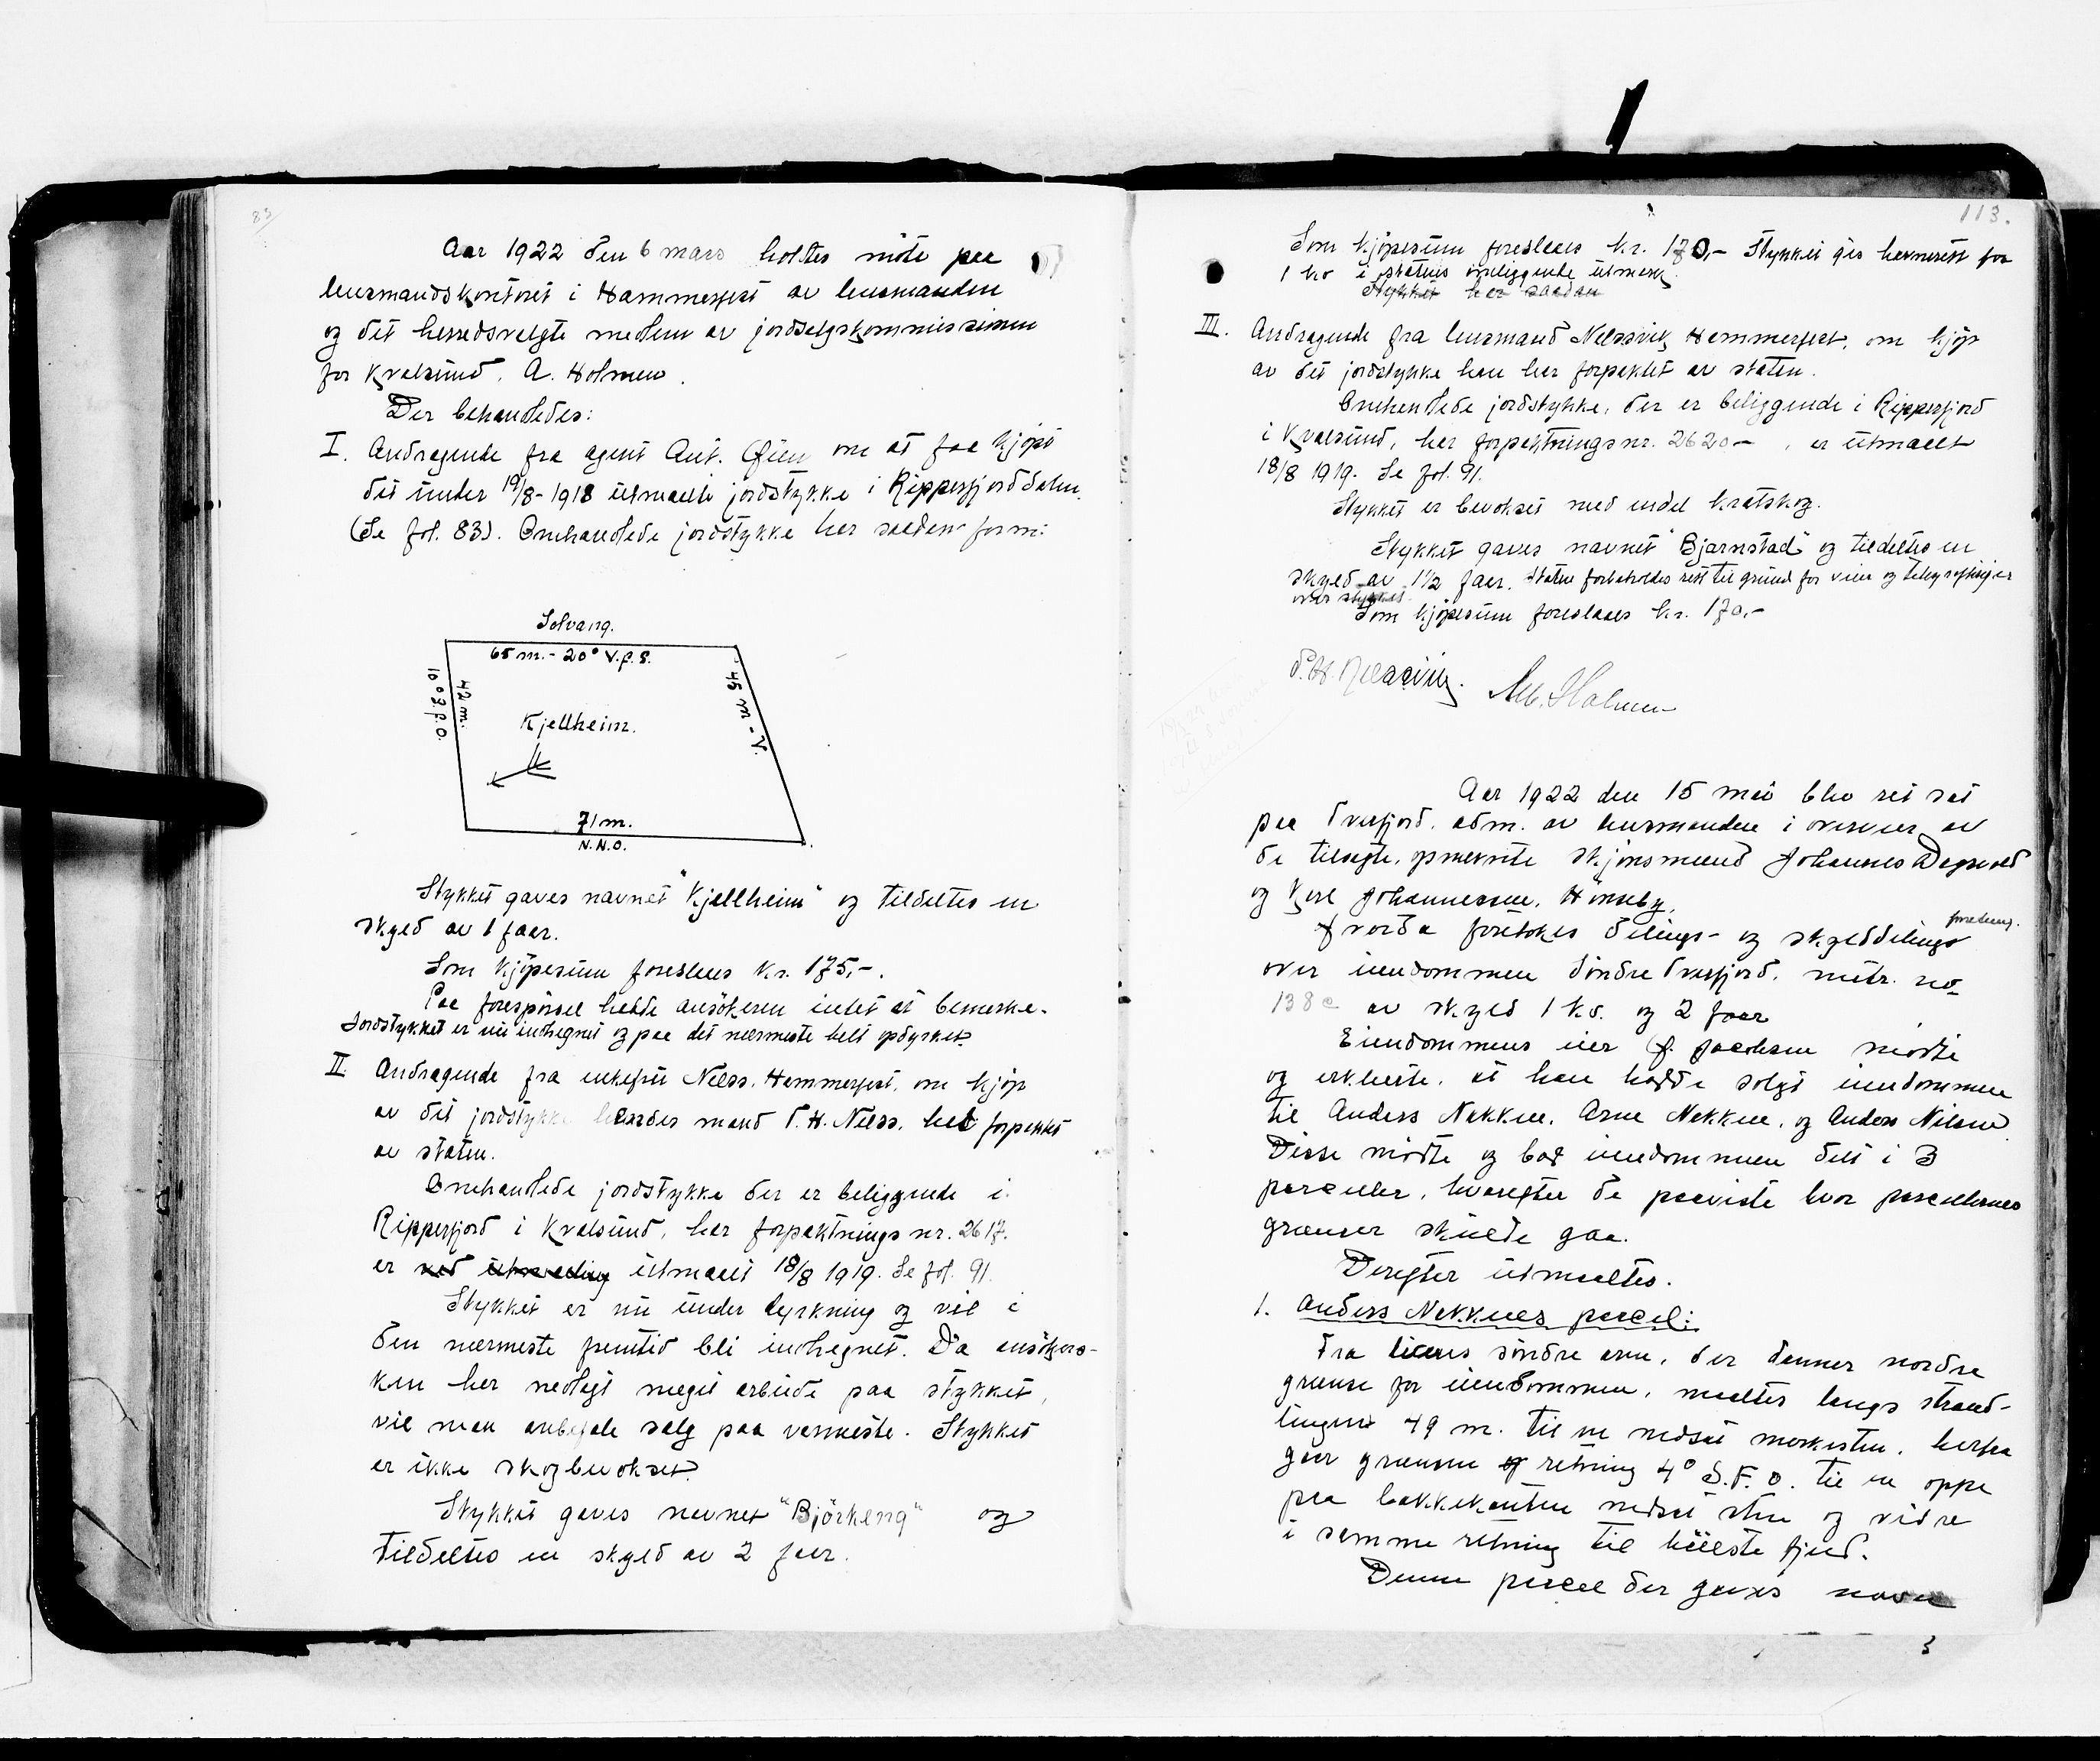 83
Aar 1922 den 6 mars holtes möte paa
lensmandskontoret i Hammerfest av lensmanden
og det herredsvalgte medlem av jordsalgskommissionen
for Kvalsund, A. Holmen.
Der behandledes:
I. Andragende fra agent Ant. om at faa kjöpt
det under 19/8-1918 utmaalte jordstykke i Ripperfjorddalen.
(Se fol. 83). Omhandlede jordstykke har saadan form:
Solvang.
65 m. - 20° V.f.S.
42 m.
10° S.f.O.
45 m - V.
Kjellheim.
71 m.
N.N.O.
Stykket gaves navnet "Kjellheim" og tildeltes en
skyld av 1 öre.
Som kjöpesum foreslaaes kr. 175,-.
Paa forespörsel hadde ansökeren intet at bemerke.
Jordstykket er nu indhegnet og paa det nærmeste helt opdyrket.
II. Andragende fra enkefru Nelss, Hammerfest, om kjöp
av det jordstykke hendes mand P.H. Nelss, har forpaktet
av staten.
Omhandlede jordstykke der er beliggende i
Ripperfjord i Kvalsund, har forpaktnings nr. 2617.
er ved utmaaling utmaalt 18/8 1919. Se fol. 91.
Stykket er nu under dyrkning og vil i
den nærmeste fremtid bli indhegnet. Da ansökers-
ken har nedlagt meget arbeide paa stykket,
vil man anbefale salg paa varmeste. Stykket
er ikke skogbevokset.
Stykket gaves navnet "Björkeng" og
tildeltes en skyld av 2 öre.
113.
Som kjöpesum foreslaaes kr. 170,- Stykket gis havnerett for
1 ko i statens omliggende utmark.
Stykket har saadan
III. Andragende fra lensmand Nelssvik, Hammerfest, om kjöp
av det jordstykke han har forpaktet av staten.
Omhandlede jordstykke, der er beliggende i Ripperfjord
i Kvalsund, har forpaktningsnr. 2620 - , er utmaalt
18/8 1919. Se fol. 91.
Stykket er bevokset med endel kratskog.
Stykket gaves navnet "Bjarnstad" og tildeltes en
skyld av 1 1/2 öre. Staten forbeholdes rett til grund for veier og telegraflinjer
over stykket.
Som kjöpesum foreslaaes kr. 170,-
P.H. Nelssvik. Alb. Holmen
Aar 1922 den 15 mai blev ret sat
paa Tverfjord, adm. av lensmanden i overvær av
de tilsagte, opnævnte skjönsmænd Johannes
og Karl Johannessen, Hönseby.
Hvorda foretokes delings- og skylddelings forretning.
over eiendommen Söndre Tverfjord, matr. no
138 c av skyld 1 kr. og 2 öre
Eiendommens eier J. Jacobsen mödte
og erklærte, at han hadde solgt eiendommen
til Anders Nakken, Arne Nakken, og Anders Nilsen
Disse mödte og bad eiendommen delt i 3
parceller, hvorefter de paaviste hvor parcellernes
grænser skulde gaa.
Derefter utmaaltes.
1. Anders Nakkens parcel:
Fra söndre arm, der danner nordre
grænse for eiendommen, maaltes langs strand-
linjen 49 m. til en nedsat merkesten. herfra
gaar grænsen og retning 4° S.F.O. til en oppe
paa bakkekanten nedsat sten og videre
i samme retning til höieste fjeld.
Denne parcel der gaves navn